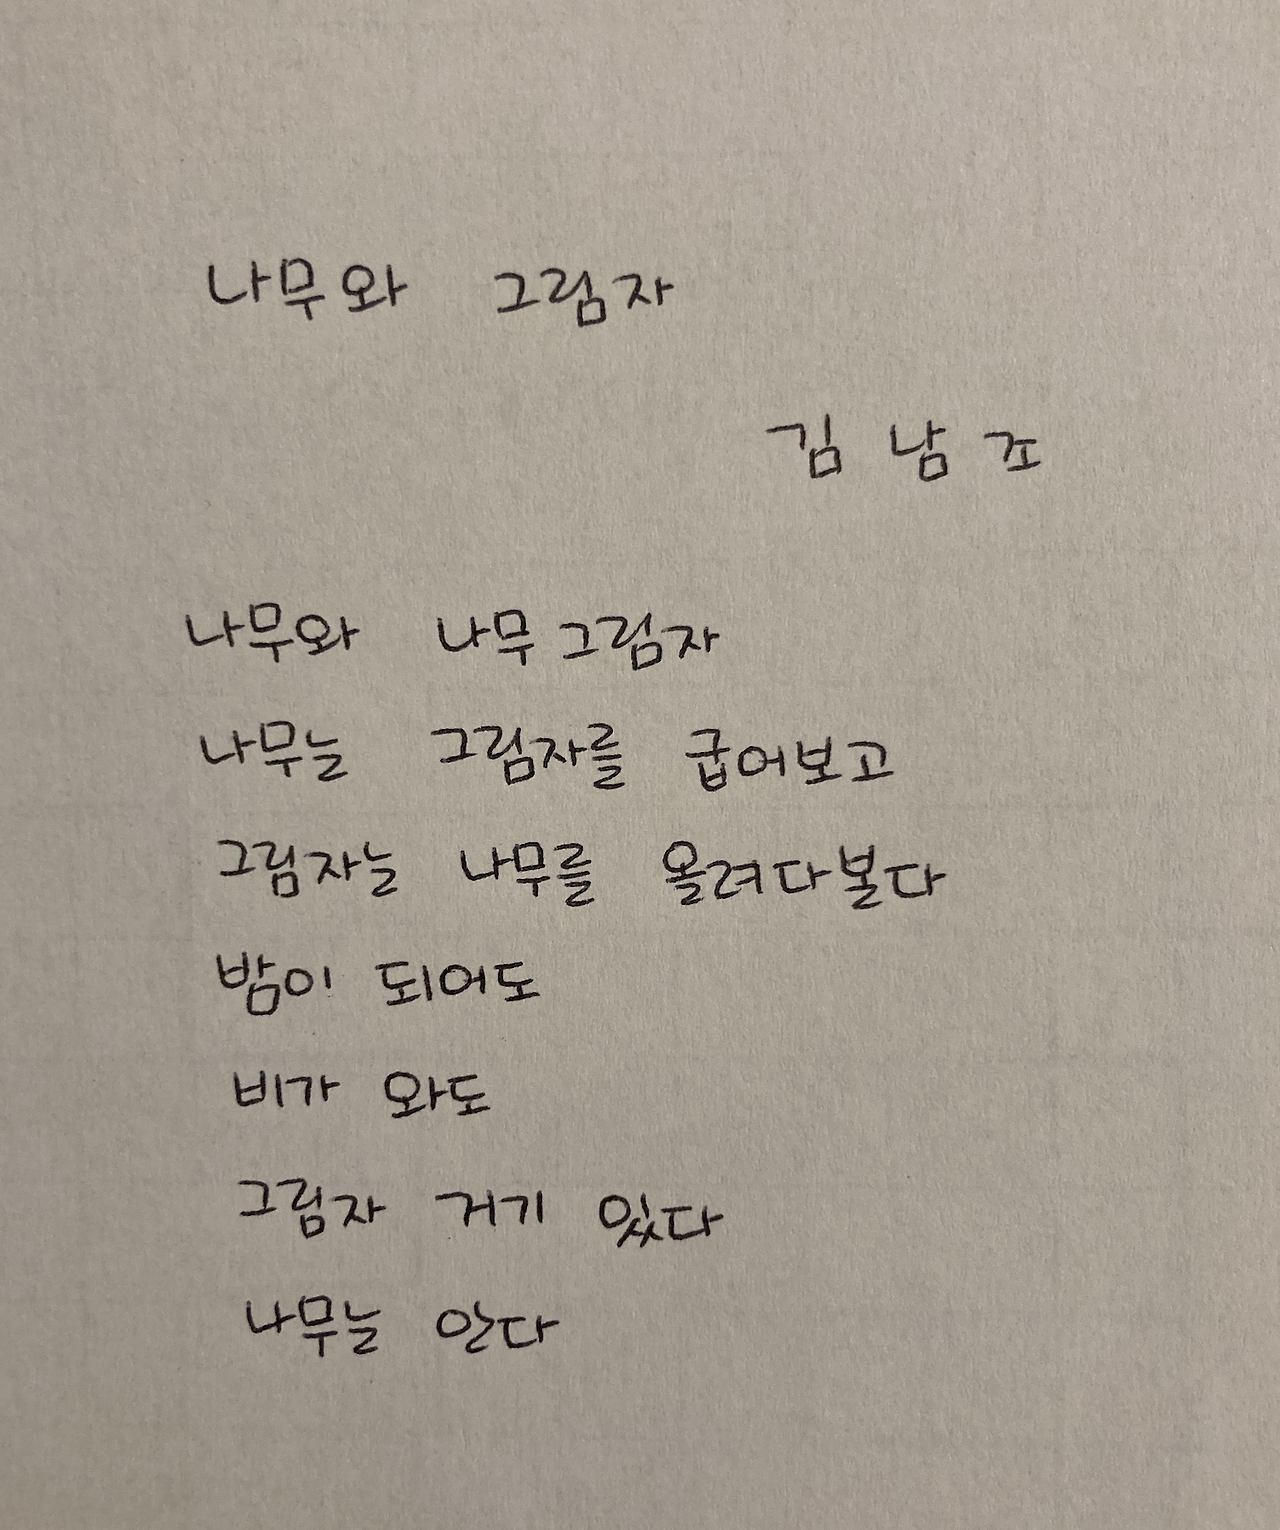 나무와 그림자
김 남 조
나무와 나무 그림자
나무는 그림자를 굽어보고
그림자는 나무를 올려다본다
밤이 되어도
비가 와도
그림자 거기 있다
나무는 안다